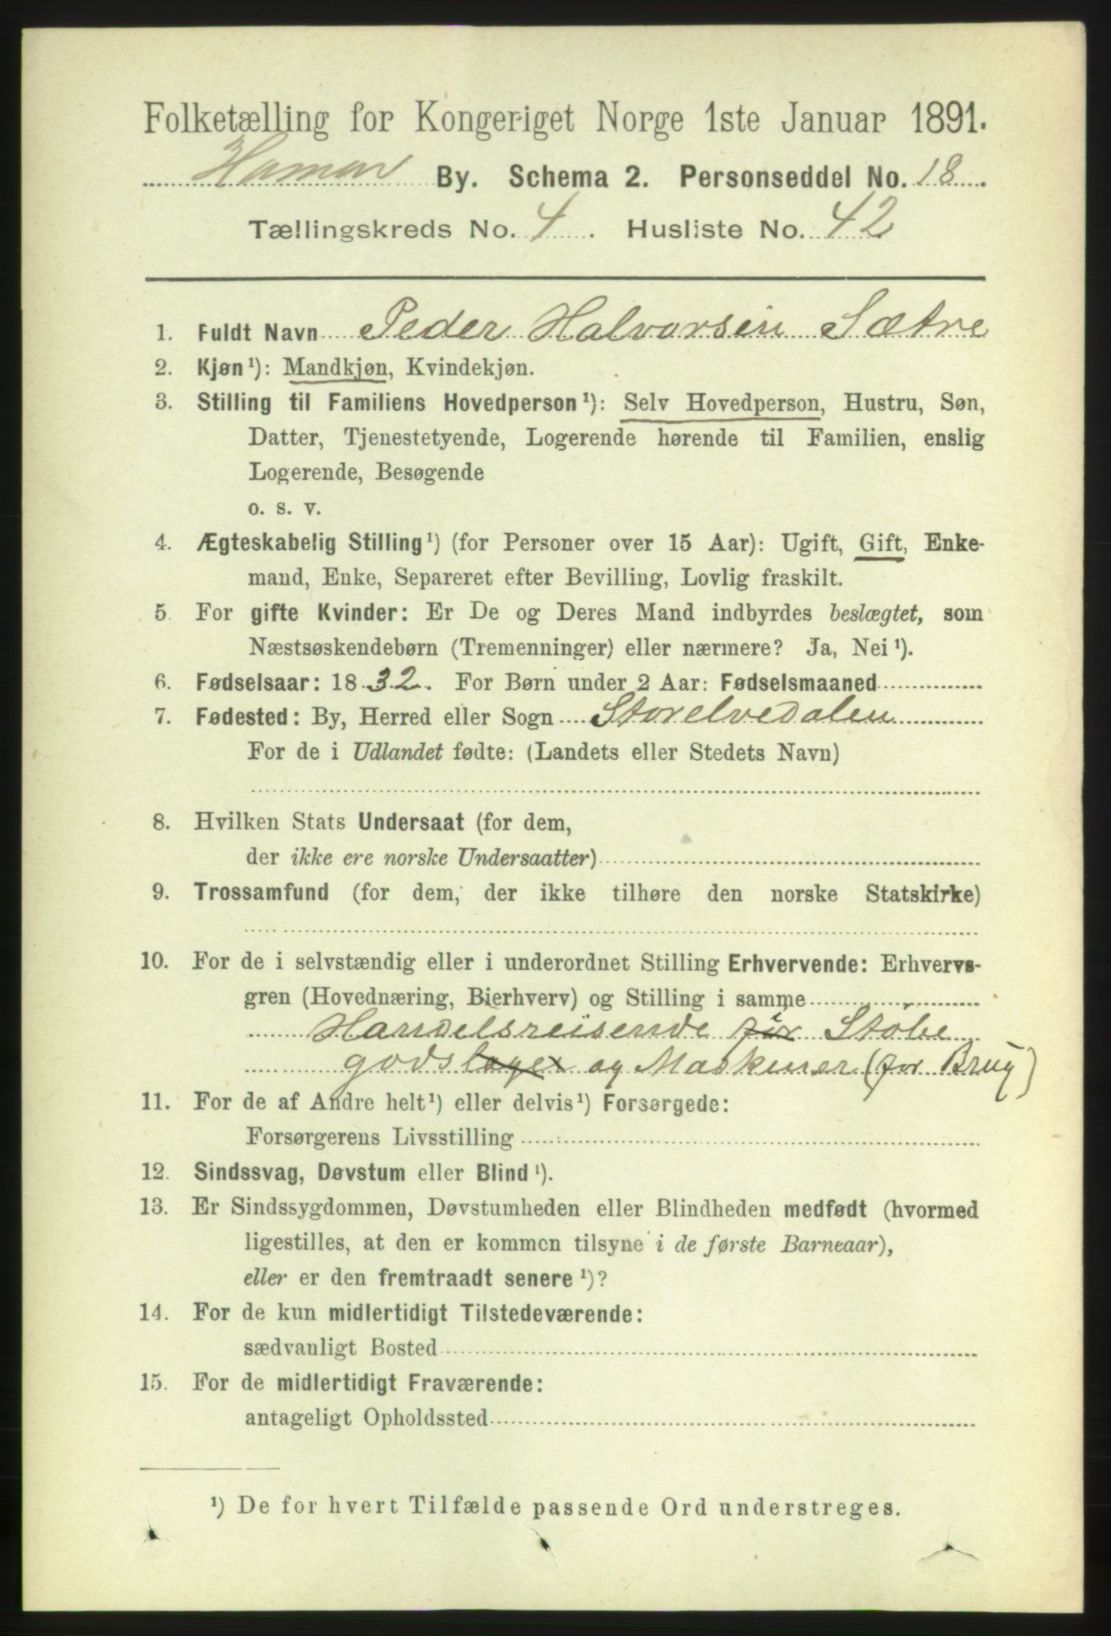 Folketælling for Kongeriget Norge 1ste Januar 1891.
Hamar By. Schema 2. Personseddel No. 18.
Tællingskreds No. 4. Husliste No. 42
1. Fuldt Navn Peder Halvorsen Sætre
2. Kjøn¹): Mandkjøn, Kvindekjøn.
3. Stilling til Familiens Hovedperson¹): Selv Hovedperson, Hustru, Søn,
Datter, Tjenestetyende, Logerende hørende til Familien, enslig
Logerende, Besøgende
o. s. v.
4. Ægteskabelig Stilling¹) (for Personer over 15 Aar): Ugift, Gift, Enke-
mand, Enke, Separeret efter Bevilling, Lovlig fraskilt.
5. For gifte Kvinder: Er De og Deres Mand indbyrdes beslægtet, som
Næstsøskendebørn (Tremenninger) eller nærmere? Ja, Nei¹).
6. Fødselsaar: 1832. For Børn under 2 Aar: Fødselsmaaned
7. Fødested: By, Herred eller Sogn Storelvedalen
For de i Udlandet fødte: (Landets eller Stedets Navn)
8. Hvilken Stats Undersaat (for dem,
der ikke ere norske Undersaatter)
9. Trossamfund (for dem, der ikke tilhøre den norske Statskirke)
10. For de i selvstændig eller i underordnet Stilling Erhvervende: Erhvervs-
gren (Hovednæring, Bierhverv) og Stilling i samme
Handelsreisende for i Støbe
godslager og Maskiner (for Brug)
11. For de af Andre helt¹) eller delvis¹) Forsørgede:
Forsørgerens Livsstilling
12. Sindssvag, Døvstum eller Blind¹).
13. Er Sindssygdommen, Døvstumheden eller Blindheden medfødt (hvormed
ligestilles, at den er kommen tilsyne i de første Barneaar),
eller er den fremtraadt senere¹)?
14. For de kun midlertidigt Tilstedeværende:
sædvanligt Bosted
15. For de midlertidigt Fraværende:
antageligt Opholdssted
¹) De for hvert Tilfælde passende Ord understreges.